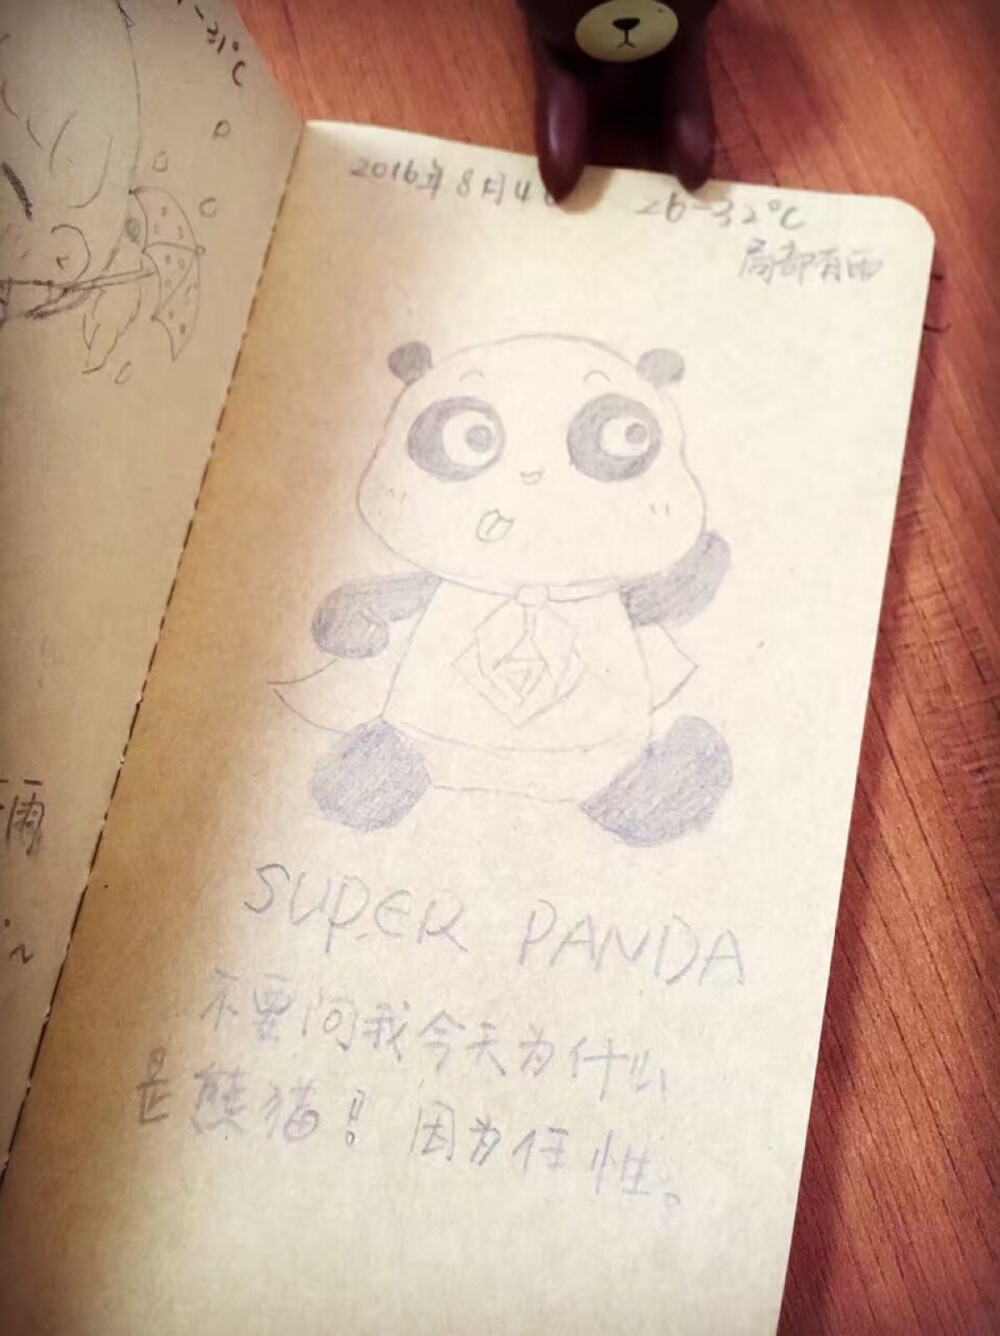 -31°C
2016年8月4
26-32°C
局部有雨
SUPER PANDA
不要问我今天为什么
是熊猫！因为任性。
雨